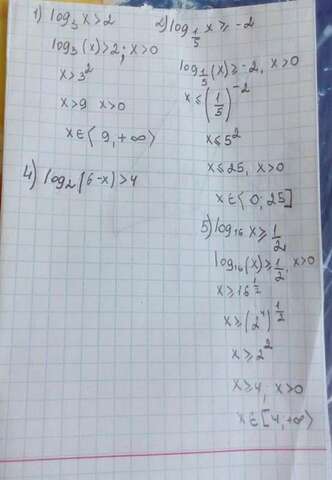 1) log₃ x > 2
log₃ (x) > 2; x > 0
x > 3²
x > 9 x > 0
x ∈ ⟨ 9, +∞ ⟩
4) log₂ (6-x) > 4
2) log_{1/5} x ≥ -2
log_{1/5} (x) ≥ -2, x > 0
x ≤ (1/5)^{-2}
x ≤ 5²
x ≤ 25, x > 0
x ∈ ⟨ 0; 25 ]
5) log₁₆ x ≥ 1/2
log₁₆ (x) ≥ 1/2, x > 0
x ≥ 16^{1/2}
x ≥ (2⁴)^{1/2}
x ≥ 2²
x ≥ 4, x > 0
x ∈ [4, +∞ ⟩